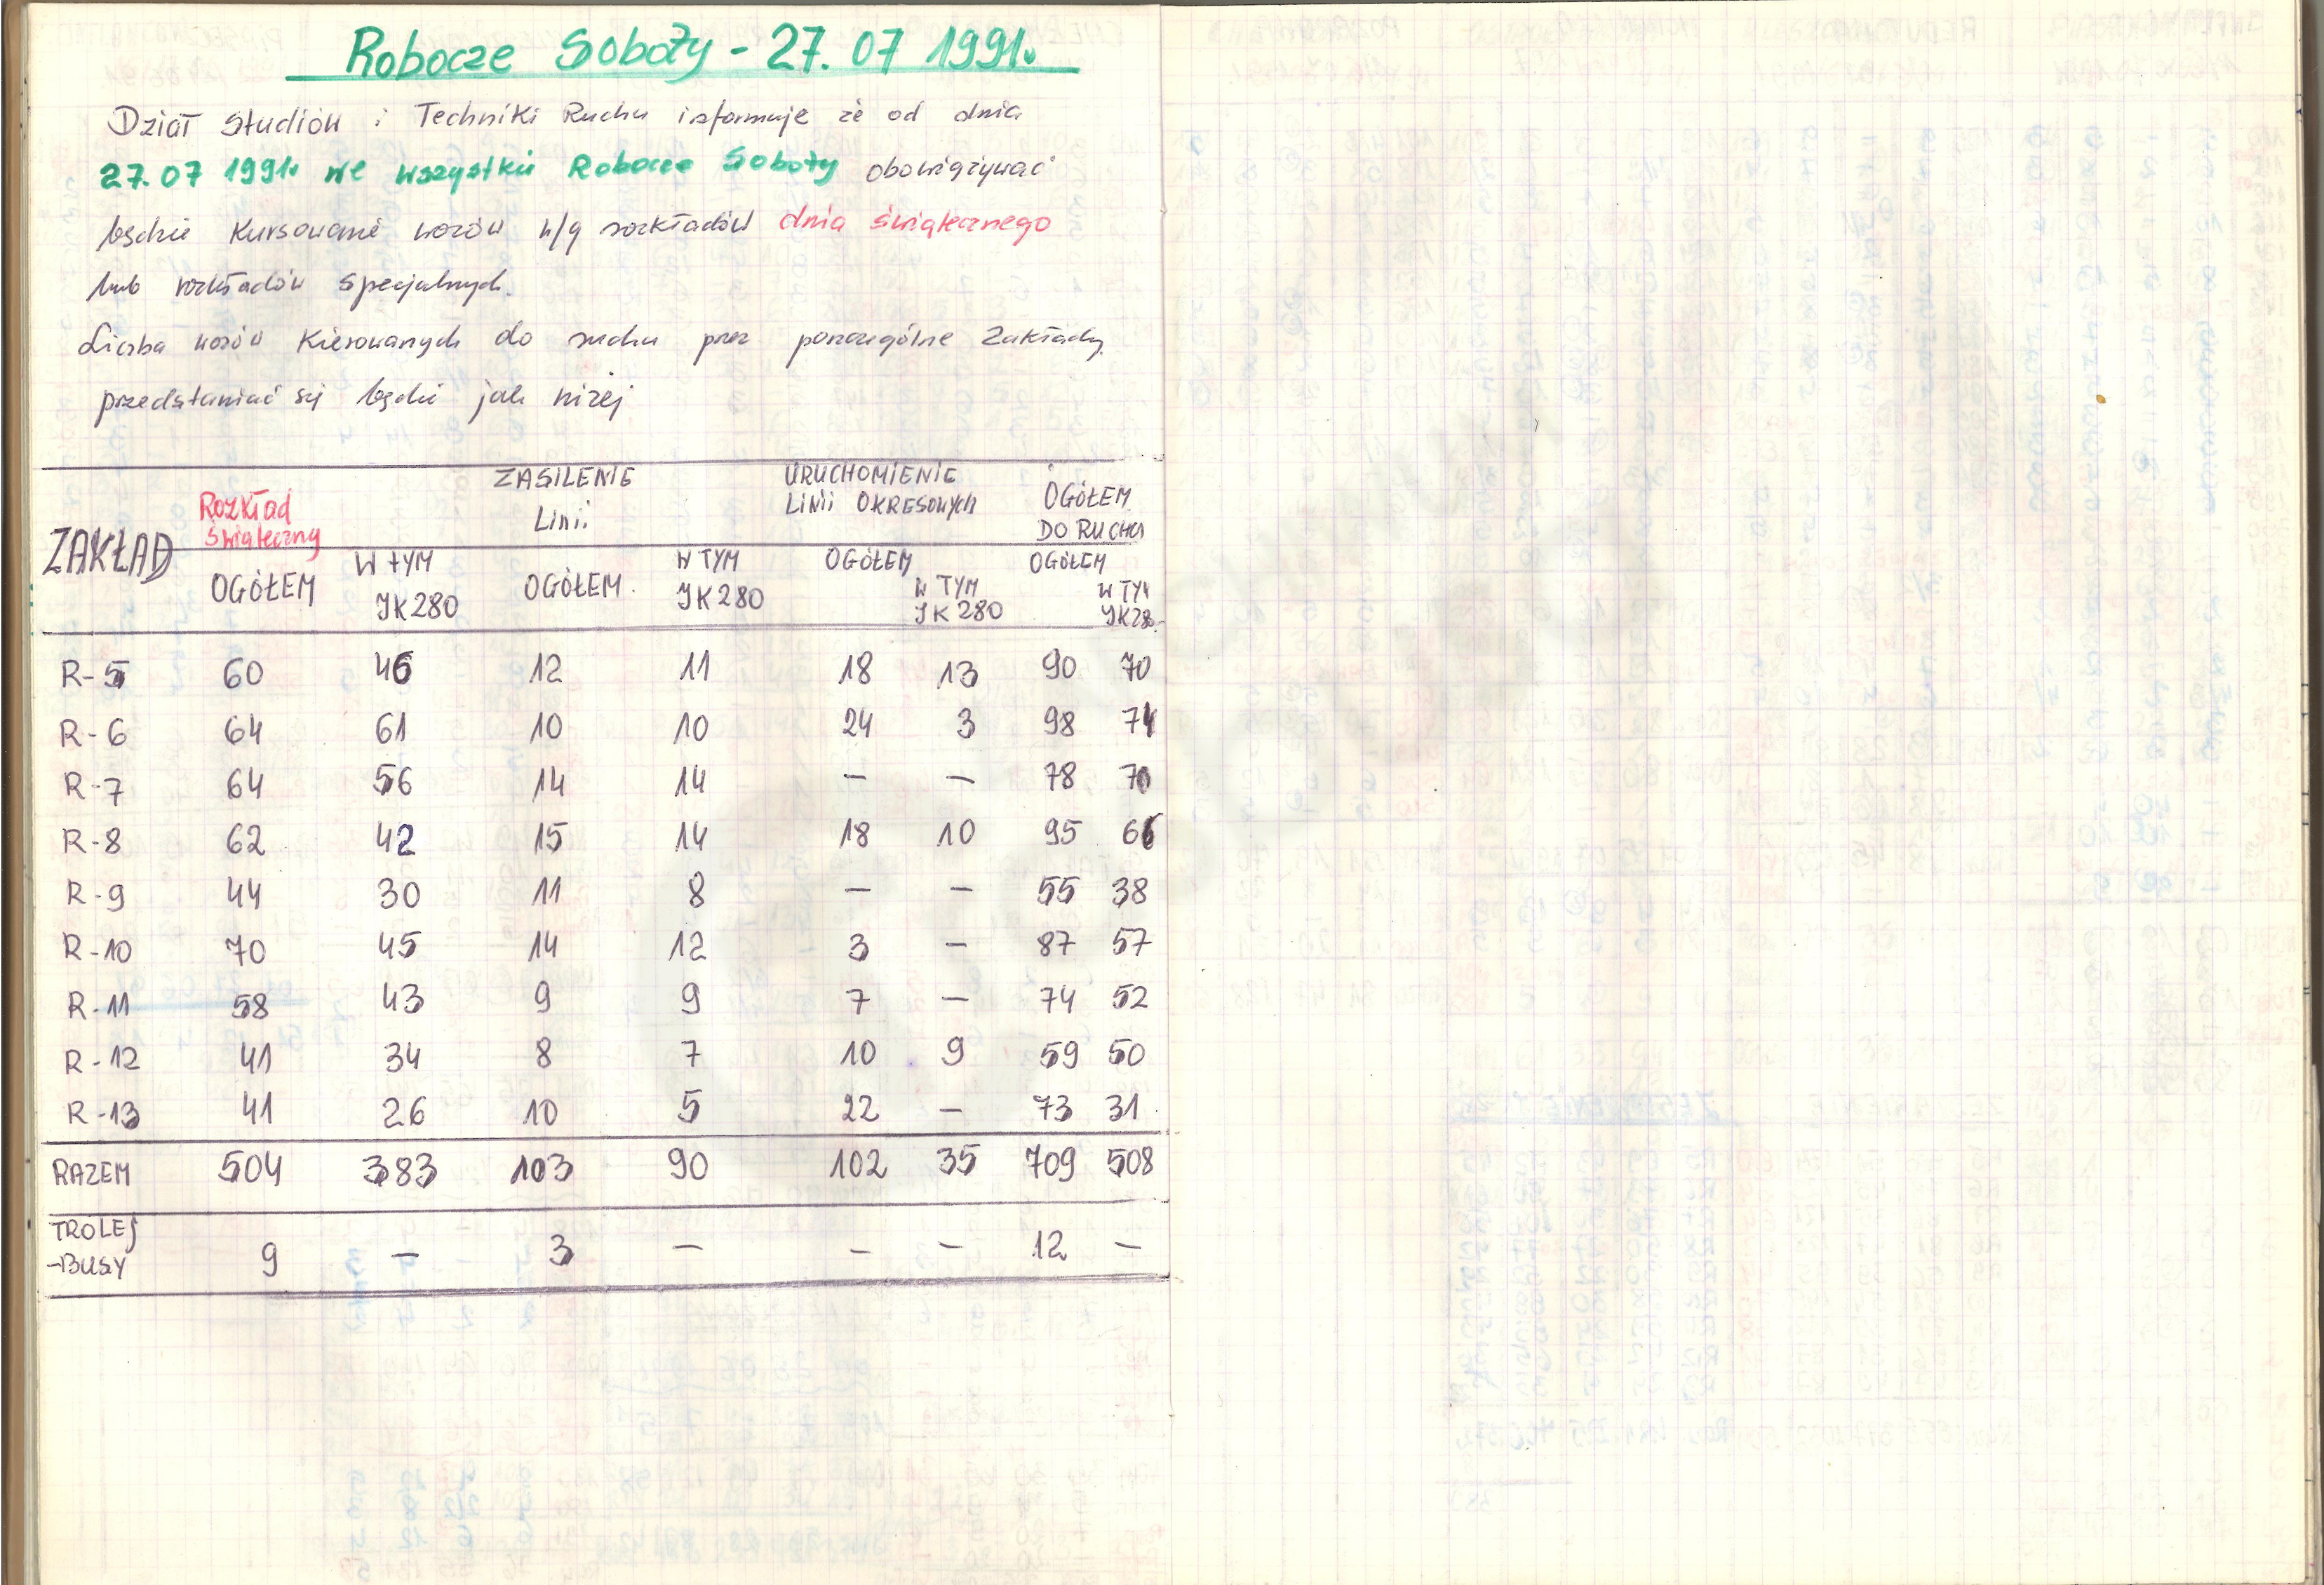 Robocze Soboty - 27.07 1991r.
Dział Studiów i Techniki Ruchu informuje że od dnia
27.07 1991r we wszystkie Robocze Soboty obowiązywać
będzie kursowanie wozów w/g rozkładów dnia świątecznego
lub rozkładów specjalnych.
Liczba wozów kierowanych do ruchu przez poszczególne Zakłady
przedstawiać się będzie jak niżej
ZAKŁAD Rozkład Świąteczny ZASILENIE Linii URUCHOMIENIE Linii OKRESOWYCH OGÓŁEM DO RUCHU
OGÓŁEM W TYM JK280 OGÓŁEM. W TYM JK280 OGÓŁEM W TYM JK280 OGÓŁEM W TYM JK280
R-5 60 46 12 11 18 13 90 70
R-6 64 61 10 10 24 3 98 74
R-7 64 56 14 14 — — 78 70
R-8 62 42 15 14 18 10 95 66
R-9 44 30 11 8 — — 55 38
R-10 70 45 14 12 3 — 87 57
R-11 58 43 9 9 7 — 74 52
R-12 41 34 8 7 10 9 59 50
R-13 41 26 10 5 22 — 73 31
RAZEM 504 383 103 90 102 35 709 508
TROLEJ
-BUSY 9 — 3 — — — 12 —